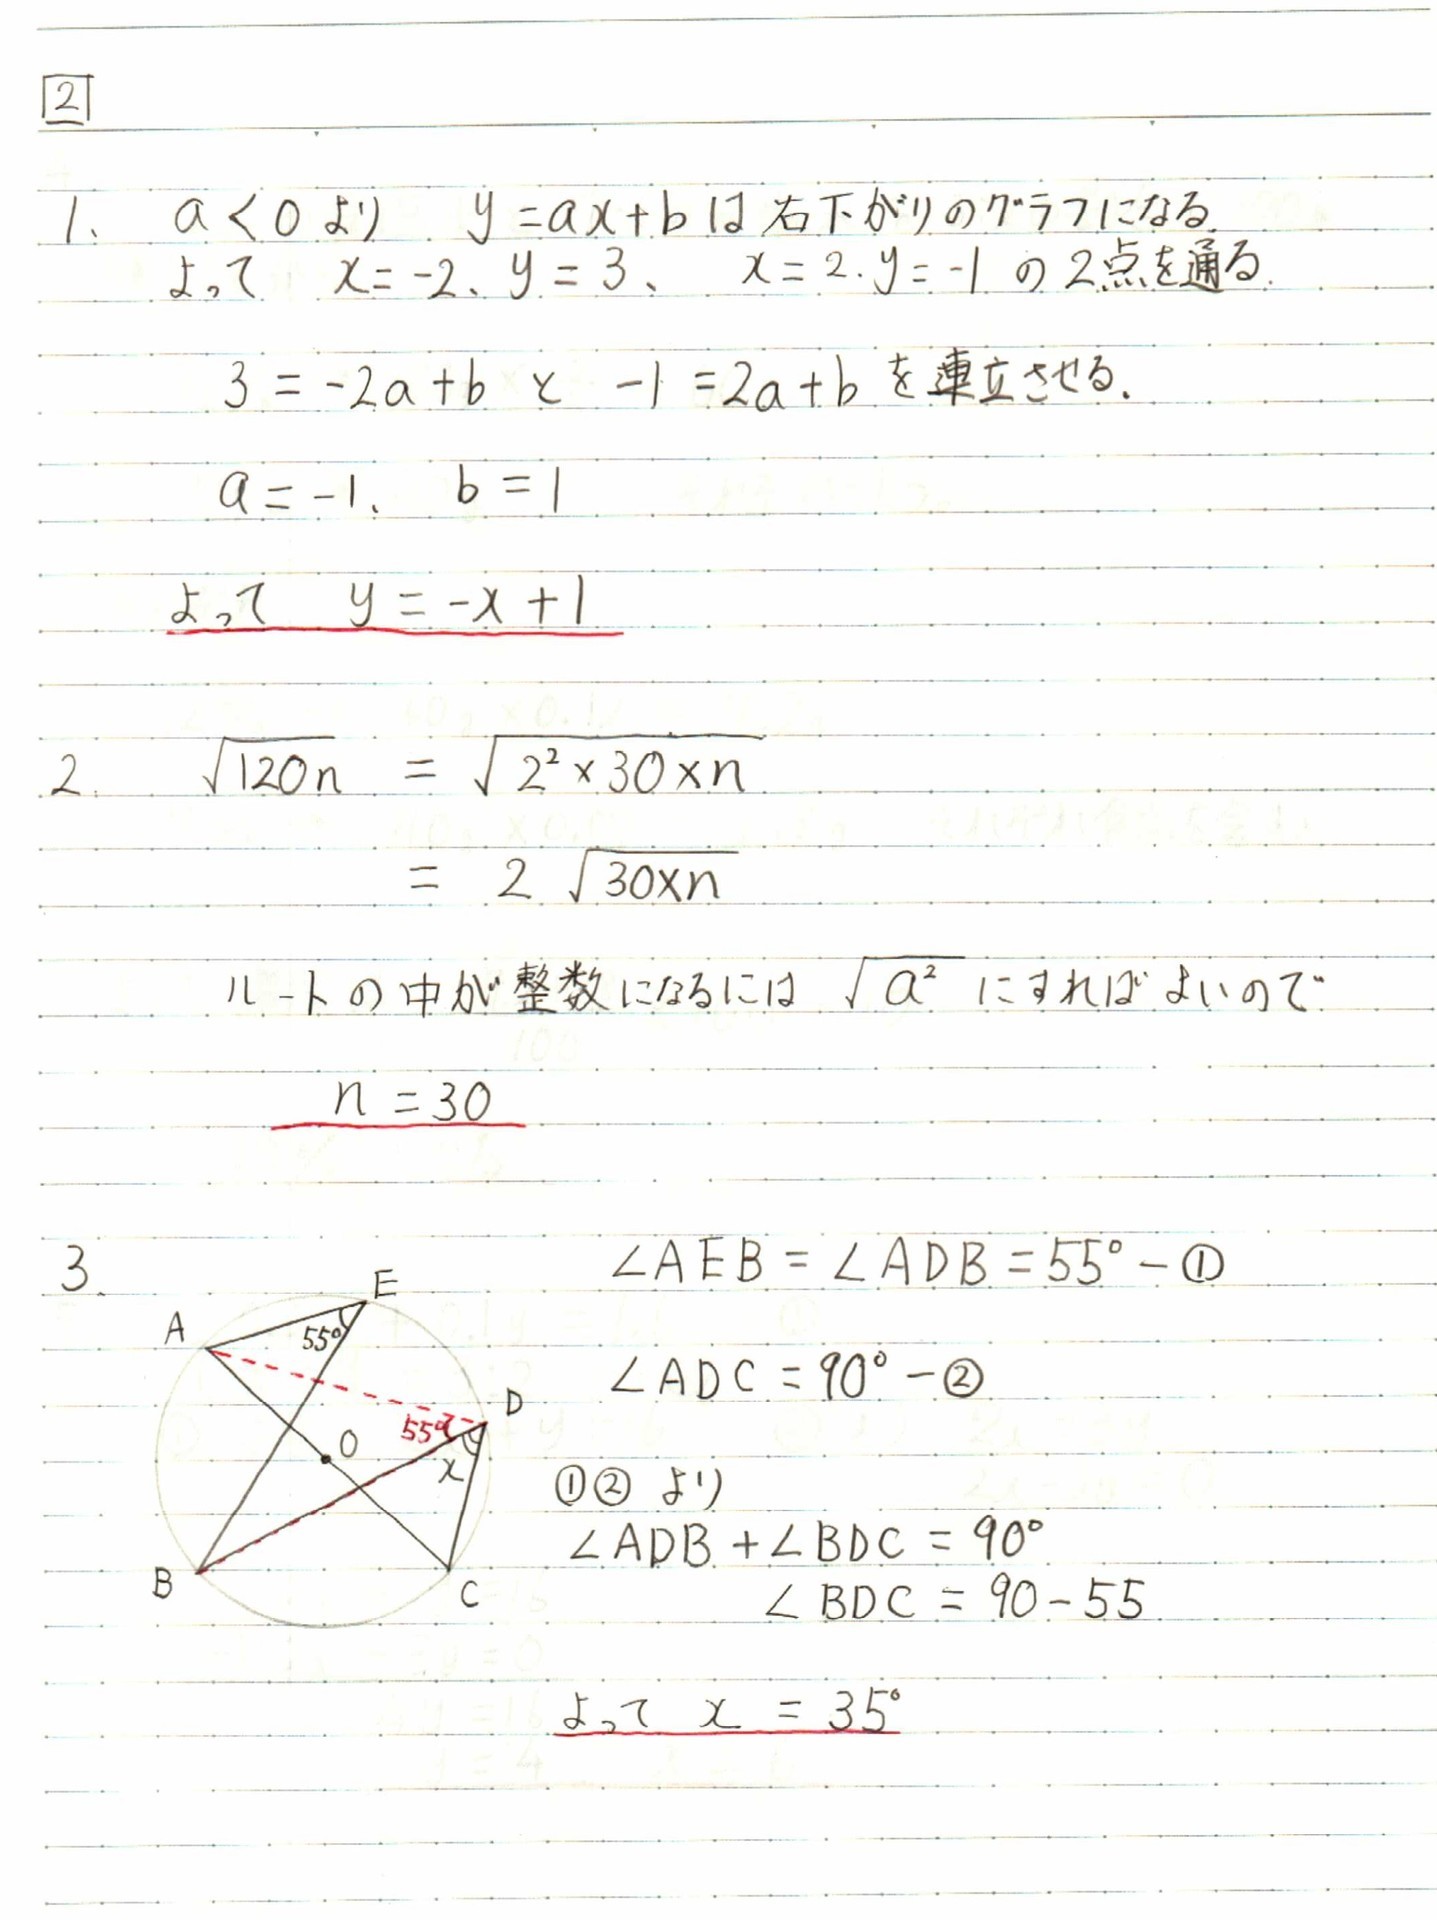 2
1. a < 0 より y = ax + b は 右下がりのグラフになる.
よって x = -2、y = 3、 x = 2. y = -1 の 2点を通る.
3 = -2a + b と -1 = 2a + b を連立させる.
a = -1、 b = 1
よって y = -x + 1
2. √120n = √2² × 30 × n
= 2 √30×n
ルートの中が整数になるには √a² にすればよいので
n = 30
3.
∠AEB = ∠ADB = 55° - ①
E
A
55°
∠ADC = 90° - ②
D
55°
O
x
①② より
∠ADB + ∠BDC = 90°
B
C
∠BDC = 90 - 55
よって x = 35°